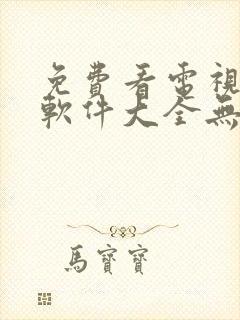 免費看電視
軟件大全無
馬寶寶